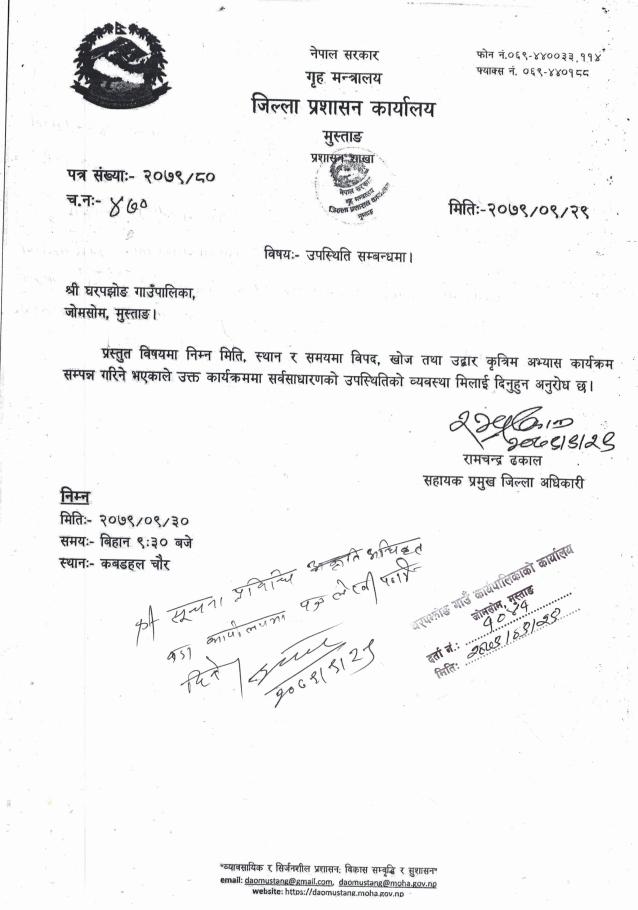 नेपाल सरकार
गृह मन्त्रालय
जिल्ला प्रशासन कार्यालय
मुस्ताङ
प्रशासन शाखा
फोन नं.०६९-४४००३३,११४
फ्याक्स नं. ०६९-४४०१८८
नेपाल सरकार
गृह मन्त्रालय
जिल्ला प्रशासन कार्यालय
मुस्ताङ
पत्र संख्याः- २०७९/८०
च.नः- ४७०
मितिः-२०७९/०९/२९
विषयः- उपस्थिति सम्बन्धमा।
श्री घरपझोङ गाउँपालिका,
जोमसोम, मुस्ताङ।
प्रस्तुत विषयमा निम्न मिति, स्थान र समयमा विपद, खोज तथा उद्धार कृत्रिम अभ्यास कार्यक्रम
सम्पन्न गरिने भएकाले उक्त कार्यक्रममा सर्वसाधारणको उपस्थितिको व्यवस्था मिलाई दिनुहुन अनुरोध छ।
२०७९/९/२९
रामचन्द्र ढकाल
सहायक प्रमुख जिल्ला अधिकारी
निम्न
मितिः- २०७९/०९/३०
समयः- बिहान ९:३० बजे
स्थानः- कबडहल चौर
श्री सूचना प्रविधि अधिकृत
वडा कार्यालयमा पत्र लेखी पठाई
दिने
२०७९/९/२९
घरपझोङ गाउँ कार्यपालिकाको कार्यालय
जोमसोम, मुस्ताङ
दर्ता नं.:
मितिः २०७९/०९/२९
"व्यावसायिक र सिर्जनशील प्रशासन; विकास सम्वृद्धि र सुशासन"
email: daomustang@gmail.com, daomustang@moha.gov.np
website: https://daomustang.moha.gov.np